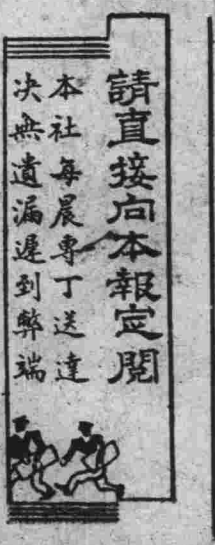 請直接向本報定閱
本社每晨專丁送達
决無遺漏遲到弊端